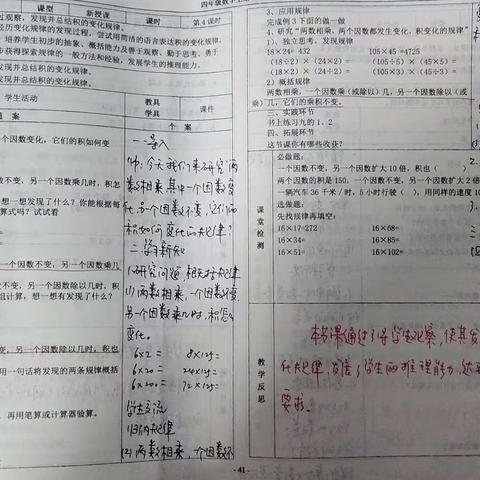 四年级数学上
课型
新授课
课时
第4课时
过观察，发现并总结积的变化规律。
经历变化规律的发现过程，尝试用简洁的语言表达积的变化规律。
培养学生初步的抽象、概括能力及善于观察、勤于思考、勇于
步获得探索规律的一般方法和经验，发展学生的推理能力。
发现并总结积的变化规律。
发现并总结积的变化规律。
学生活动
教具
学具
课件
案
个 案
一个因数变化，它们的积如何变
因数不变，另一个因数乘几时，积怎
想一想发现了什么？你能根据每
算式吗？试试看
因数不变，另一个因数乘几
因数不变，另一个因数除以几时，积
组计算，想一想有发现了什么？
不变，另一个因数除以几时，积也
用一句话将发现的两条规律概括
再用笔算或计算器验算。
一 导入
师：今天我们来研究两
数相乘，其中一个因数变
化，另一个因数不变，它们的
积如何变化的规律？
二 学习新知
1.研究问题，概括规律
(1)两数相乘，一个因数不变，
另一个因数乘几时，积怎么
变化。
6×2= 8×125=
6×20= 24×125=
6×200= 72×125=
学生交流
归纳规律
(2)两数相乘，一个因数不
3、应用规律
完成例3下面的做一做
4、研究“两数相乘，两个因数都发生变化，积变化的规律”
1）、独立思考，发现规律
18×24= 432 105×45 =4725
(18÷2) × (24×2) = (105÷5) × (45×5) =
(18×2) × (24÷2) = (105×3) × (45÷3) =
2）概括规律
两数相乘，一个因数乘（或除以）几，另一个因数除以（或
乘）几，它们的乘积不变。
三、实践环节
书上练习九的1、2
四、拓展环节
这节课你有哪些收获？
课堂检测
必做题：
一个因数不变，另一个因数扩大10倍，积也（
两个因数的积是150，一个因数不变，另一个因数扩大2倍
一辆汽车36千米/时，5小时行驶（ ），用同样的速度10
选做题：
先找规律再填空：
16×17=272 16×68=
16×34= 16×85=
16×51= 16×102=
教学反思
本节课通过引导学生观察，使其发
化规律，发展了学生的推理能力，达
要求。
- 41 -